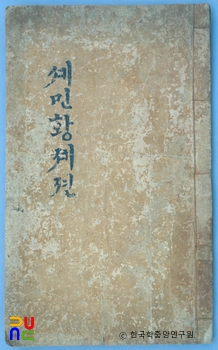 세민황제젼
© 한국학중앙연구원